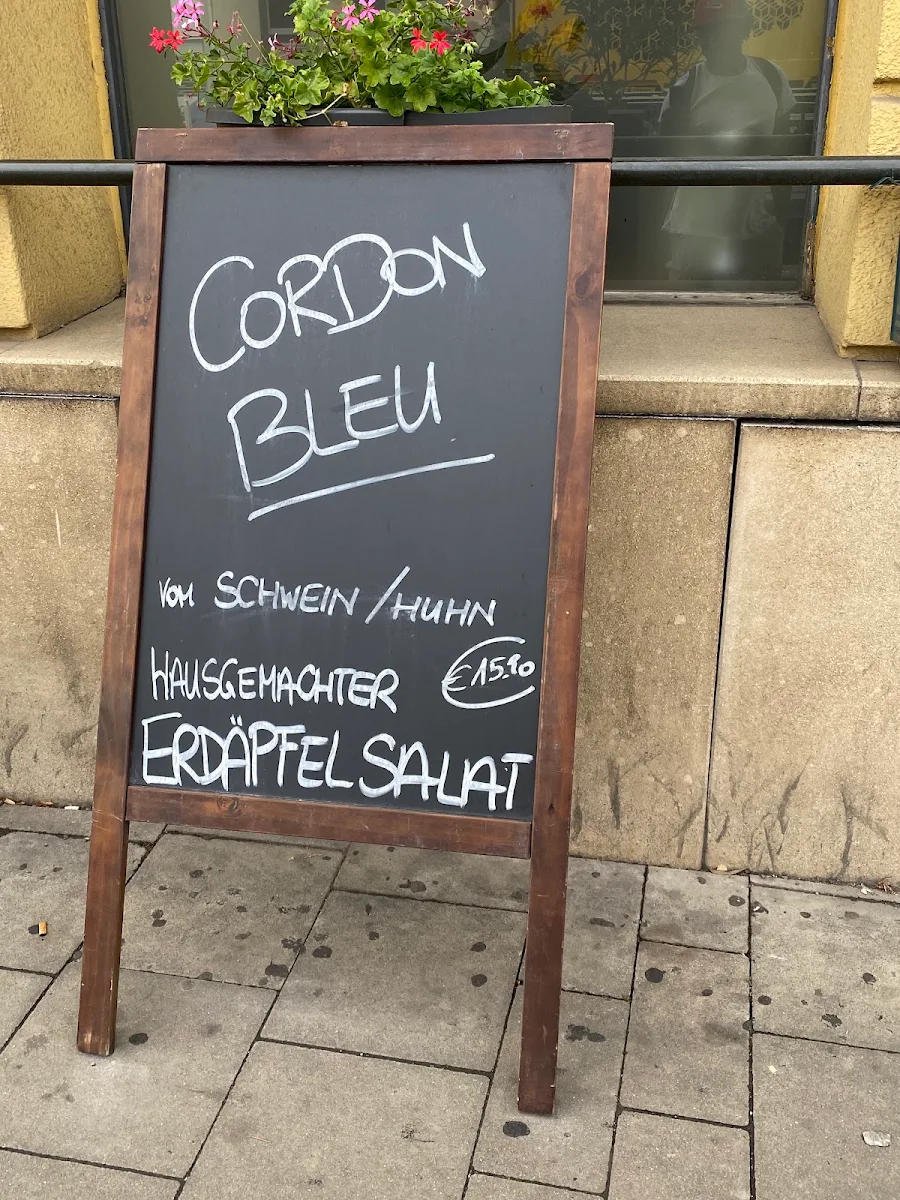 CORDON
BLEU
VOM SCHWEIN / HUHN
HAUSGEMACHTER €15.90
ERDÄPFELSALAT